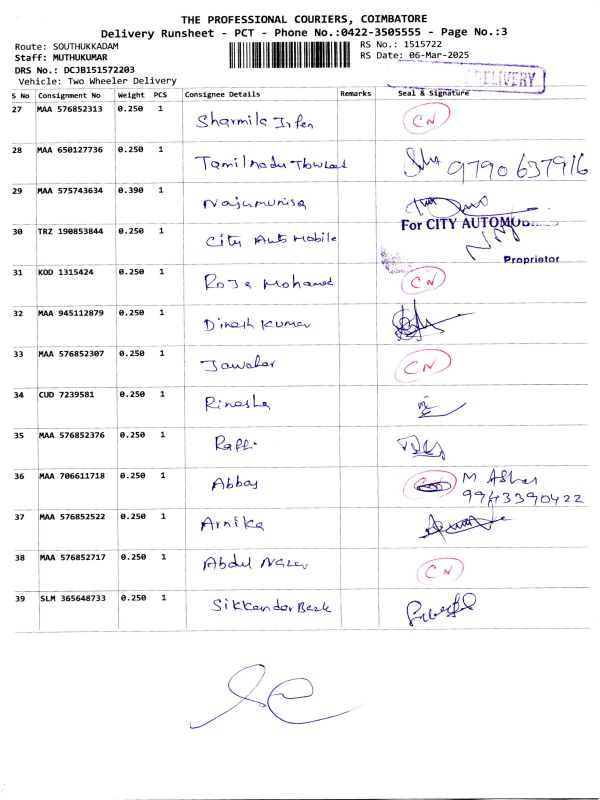 THE PROFESSIONAL COURIERS, COIMBATORE
Delivery Runsheet - PCT - Phone No.:0422-3505555 - Page No.:3
Route: SOUTHUKKADAM RS No.: 1515722
Staff: MUTHUKUMAR RS Date: 06-Mar-2025
DRS No.: DCJB151572203
Vehicle: Two Wheeler Delivery DELIVERY
S No Consignment No Weight PCS Consignee Details Remarks Seal & Signature
27 MAA 576852313 0.250 1 Sharmila Irfan CN
28 MAA 650127736 0.250 1 Tamilnadu Thowheed 9790637916
29 MAA 575743634 0.390 1 Najumunisa
30 TRZ 190853844 0.250 1 City Auto Mobile For CITY AUTOMOBILES
Proprietor
31 KOD 1315424 0.250 1 Roja Mohamed CN
32 MAA 945112879 0.250 1 Dinesh Kumar
33 MAA 576852307 0.250 1 Jawahar CN
34 CUD 7239581 0.250 1 Rinasha
35 MAA 576852376 0.250 1 Raffi
36 MAA 706611718 0.250 1 Abbas M Ashar
9943390422
37 MAA 576852522 0.250 1 Arnika
38 MAA 576852717 0.250 1 Abdul Nazer CN
39 SLM 365648733 0.250 1 Sikkandar